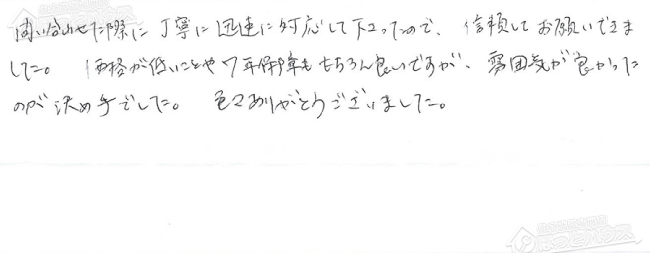 問い合わせた際に丁寧に迅速に対応して下さったので、信頼してお願いできま
した。 価格が低いことや7年保障もちろん良いですが、雰囲気が良かった
のが決め手でした。 色々ありがとうございました。